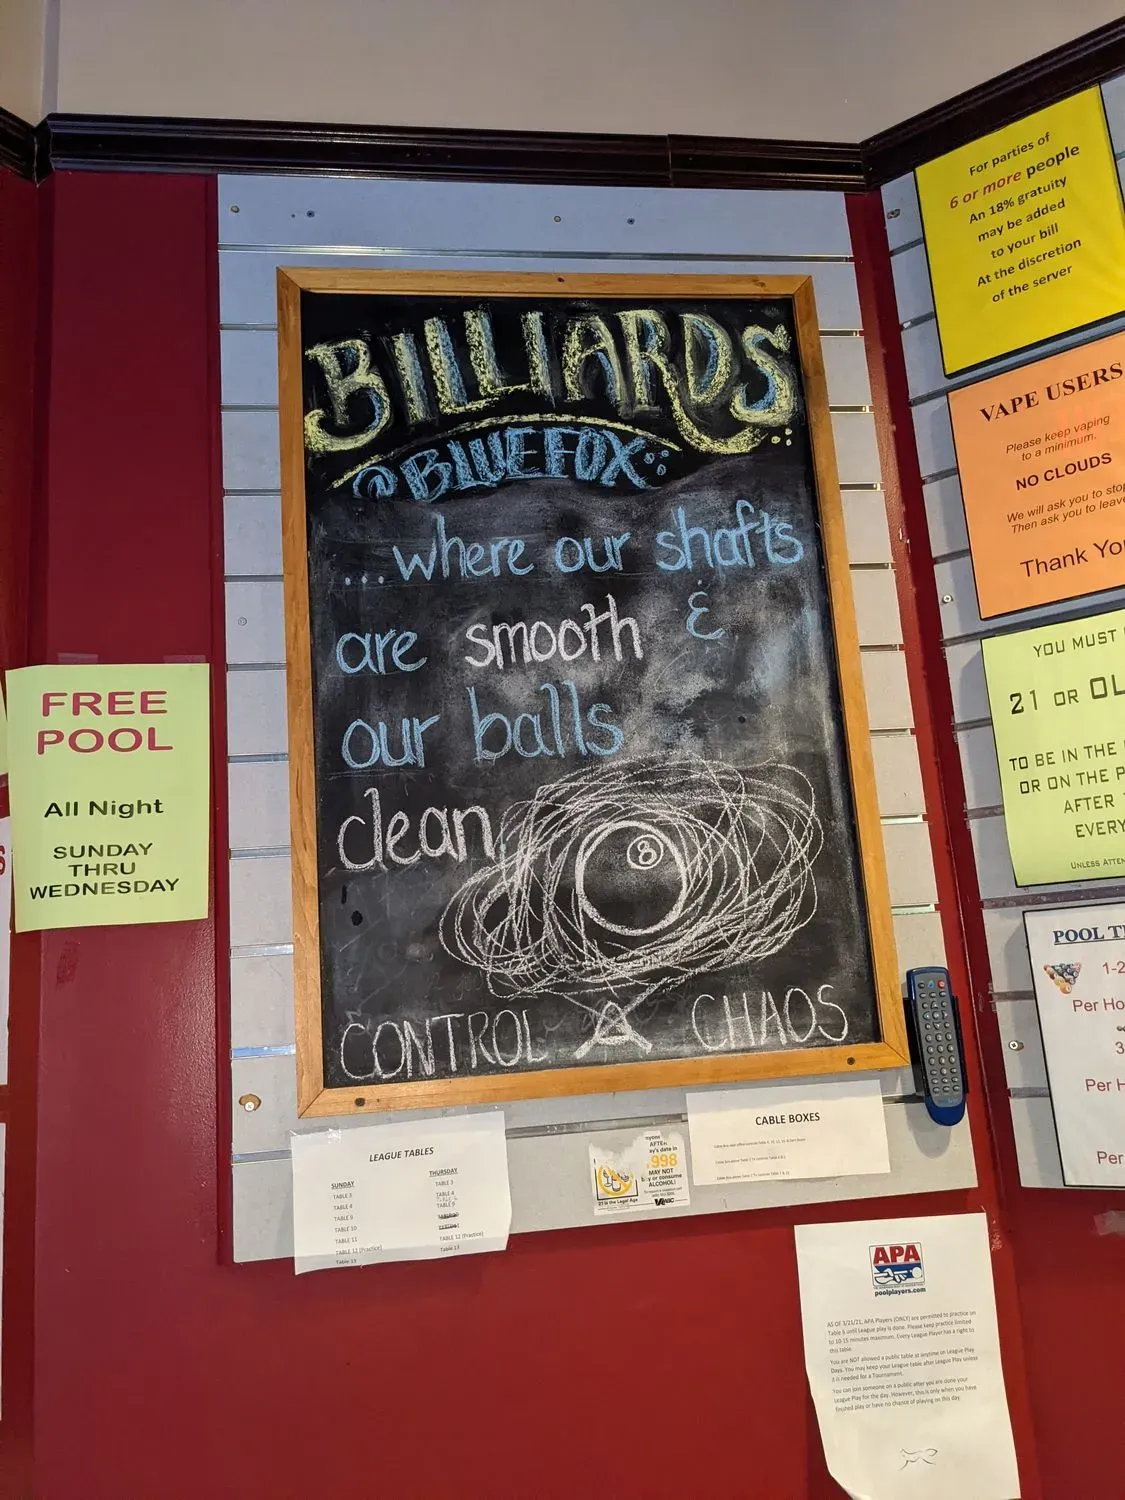 BILLIARDS
@BLUEFOX
...where our shafts
are smooth &
our balls
clean
8
CONTROL CHAOS
FREE
POOL
All Night
SUNDAY
THRU
WEDNESDAY
For parties of
6 or more people
An 18% gratuity
may be added
to your bill
At the discretion
of the server
VAPE USERS
Please keep vaping
to a minimum.
NO CLOUDS
We will ask you to stop
Then ask you to leave
Thank You
YOU MUST
21 OR OL
TO BE IN THE
OR ON THE P
AFTER
EVERY
UNLESS ATTEN
POOL T
1-2
Per Ho
3
Per H
Per
LEAGUE TABLES
SUNDAY
TABLE 3
TABLE 4
TABLE 9
TABLE 10
TABLE 11
TABLE 12 (Practice)
Table 13
THURSDAY
TABLE 3
TABLE 4
TABLE 9
TABLE 12 (Practice)
Table 13
AFTER
's date in
1998
MAY NOT
buy or consume
ALCOHOL!
21 is the Legal Age
ABC
CABLE BOXES
APA
poolplayers.com
AS OF 3/21/21, APA Players (ONLY) are permitted to practice on
Table 6 until League play is done. Please keep practice limited
to 10-15 minutes maximum. Every League Player has a right to
this table.
You are NOT allowed a public table at anytime on League Play
Days. You may keep your League table after League Play unless
it is needed for a Tournament.
You can join someone on a public after you are done your
League Play for the day. However, this is only when you have
finished play or have no chance of playing on this day.